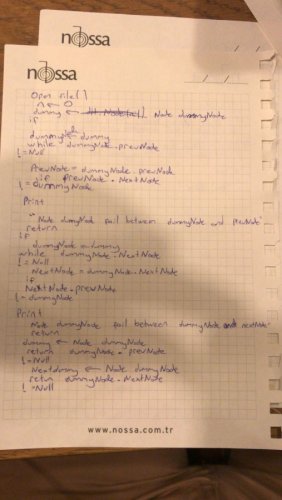 nossa
nossa
Open file()
n ← 0
dummy ← Node dummyNode
if
dummy ← dummy
while dummyNode.prevNode
!= Null
PrevNode = dummyNode.prevNode
if PrevNode.NextNode
!= dummyNode
Print
"Node dummyNode fail between dummyNode and prevNode"
return
if
dummyNode = dummy
while dummyNode.NextNode
!= Null
NextNode = dummyNode.NextNode
if
NextNode.prevNode
!= dummyNode
Print
Node dummyNode fail between dummyNode and nextNode"
return
dummy ← Node dummyNode
return dummyNode.prevNode
!= Null
Nextdummy ← Node dummyNode
return dummyNode.NextNode
! = Null
www.nossa.com.tr